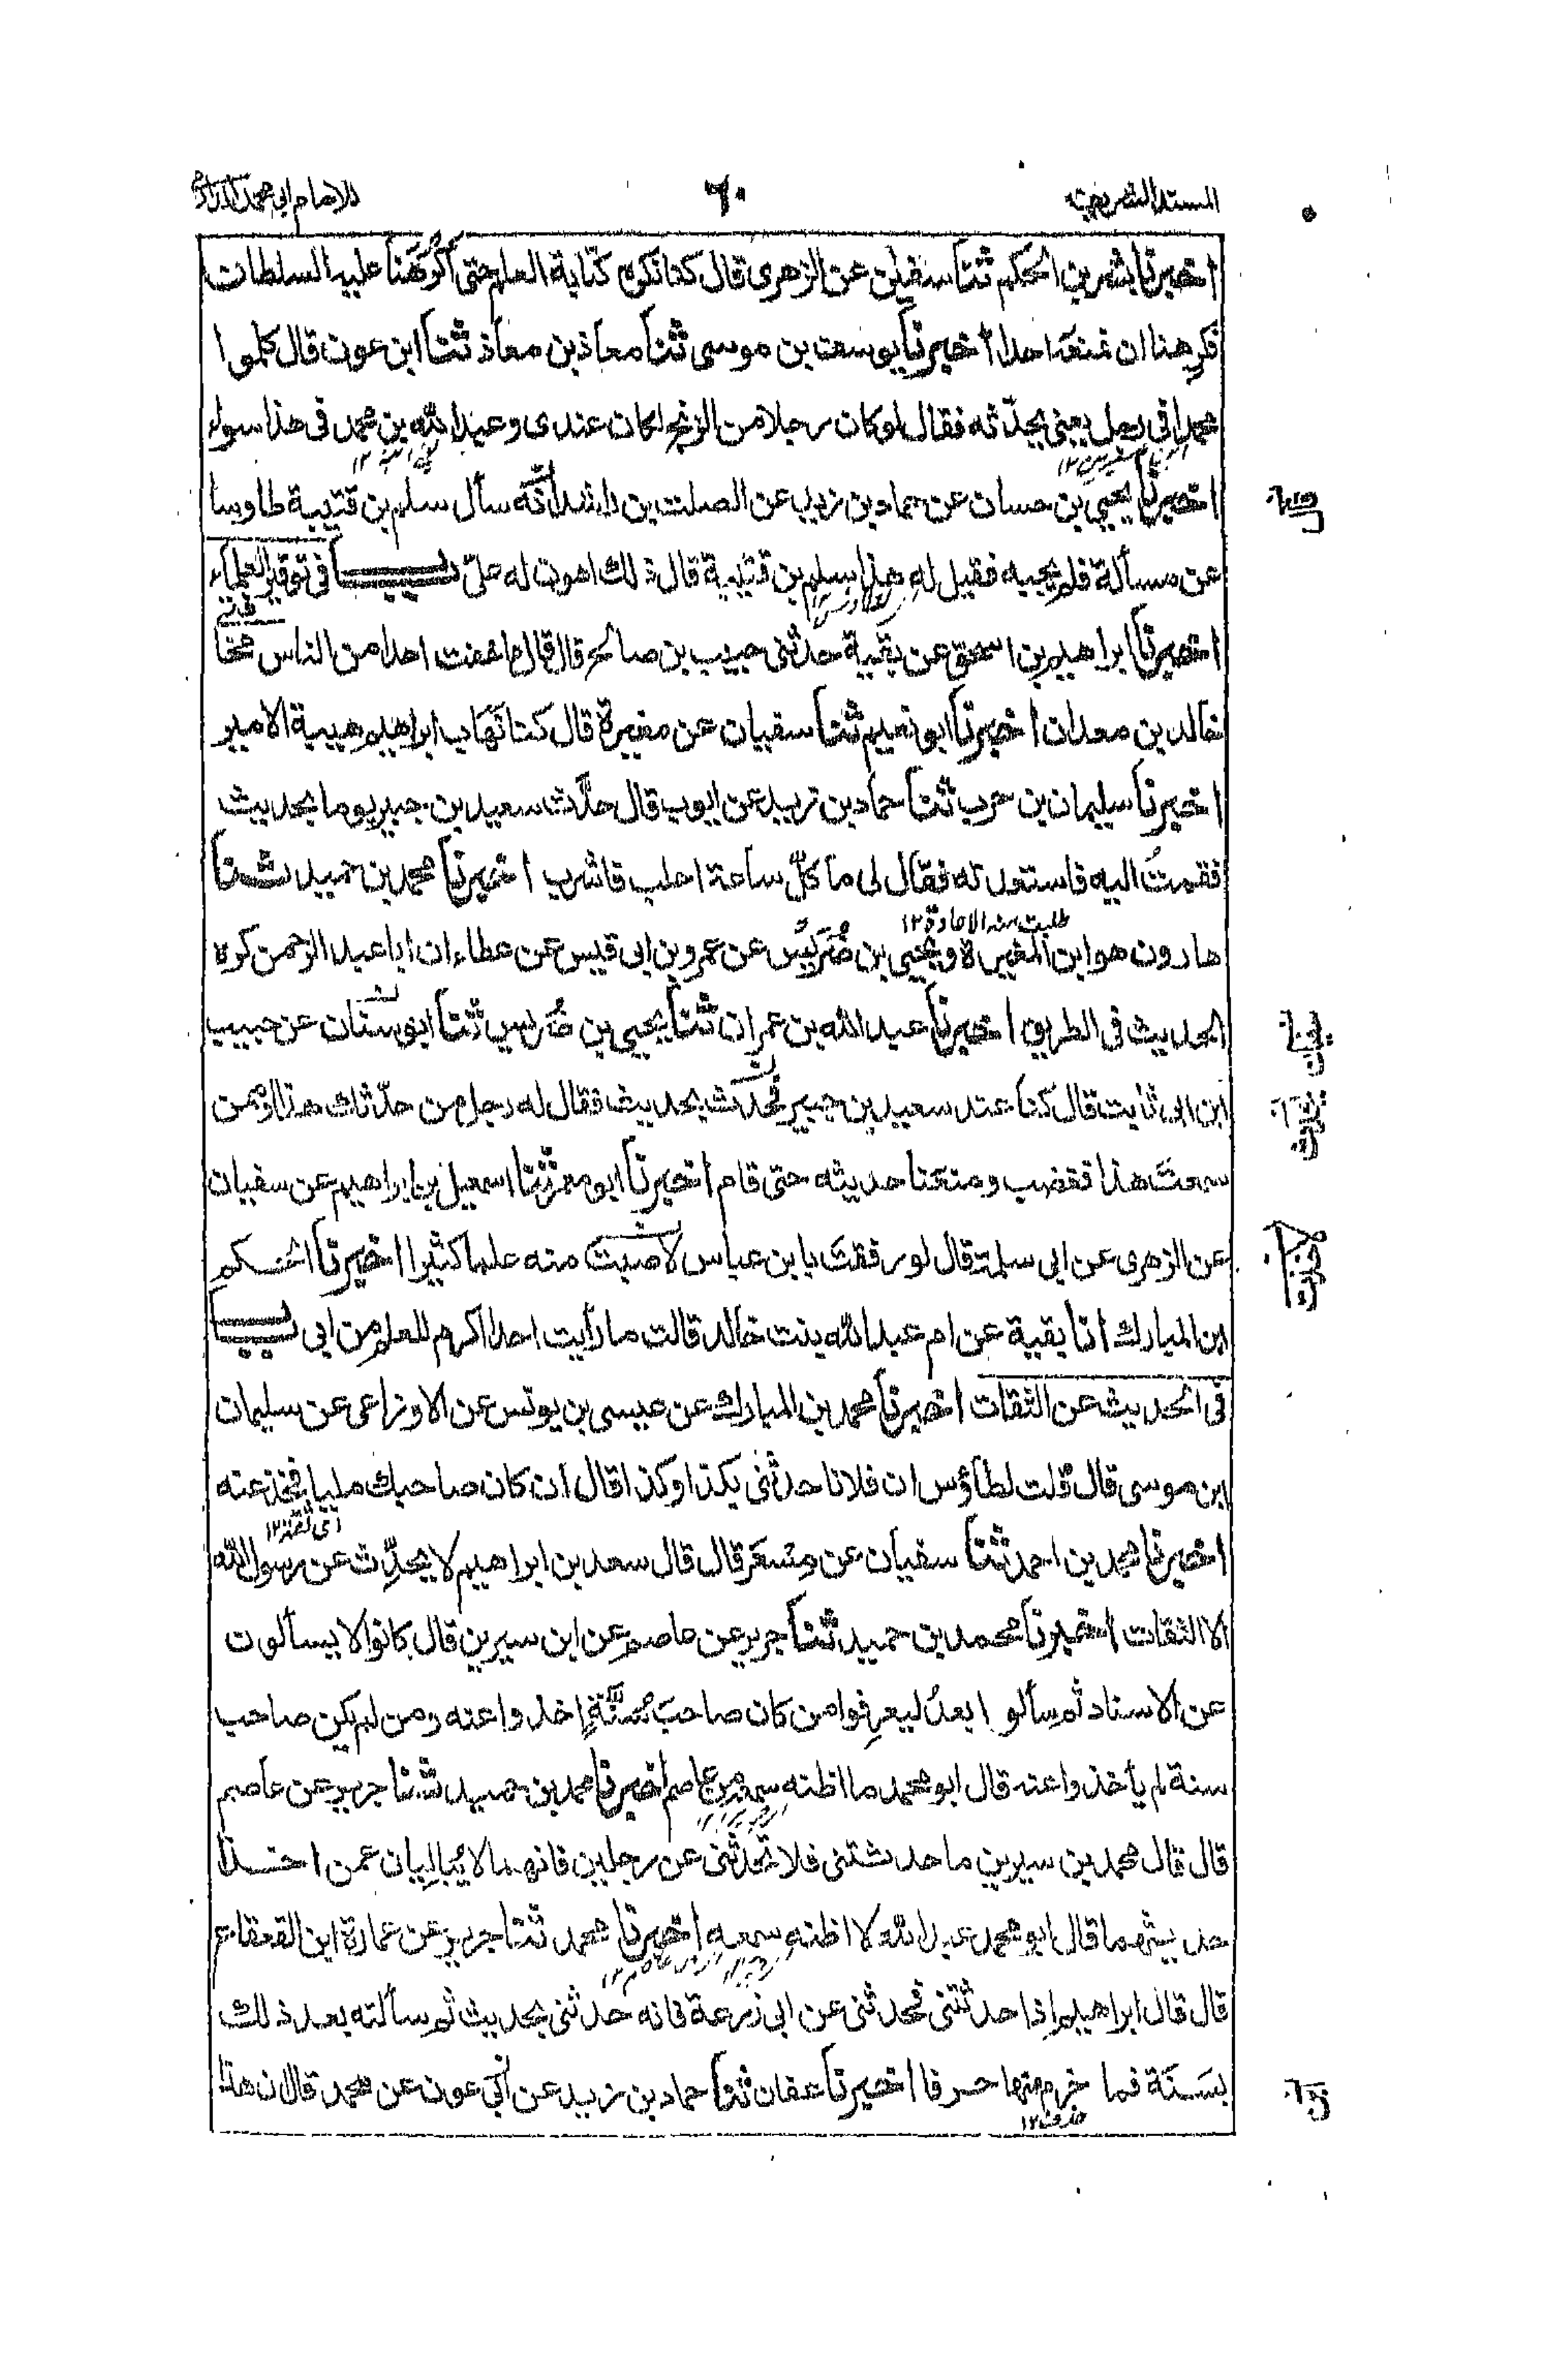 المسند الشريف
٦٠
للامام ابي محمد الدارمي
اخبرنا بشر بن الحكم ثنا سفيٰن عن الزهرى قال كنا نكره كتابة العلم حتى أكرهنا عليه السلطان
فكرهنا ان نمنعه احدا أخبرنا يوسف بن موسى ثنا معاذ بن معاذ ثنا ابن عون قال كلموا
محمدا فى رجل يعنى يحدّثه فقال لو كان رجلا من الزنج لكان عندى وعبد الله بن محمد فى هذا سواء
اخبرنا يحيى بن حسان عن حماد بن زيد عن الصلت بن راشد أنّه سأل سلم بن قتيبة طاوسا
عن مسألة فلم يجبه فقيل له هذا سلم بن قتيبة قال ذلك اهون له علىّ باب فى توقير العلماء
اخبرنا ابراهيم بن اسحق عن بقية حدثنى حبيب بن صالح قال قال ما خفت احدا من الناس مخافتى
خالد بن معدان أخبرنا ابو نعيم ثنا سفيان عن مغيرة قال كنا نهاب ابراهيم هيبة الامير
اخبرنا سليمان بن حرب ثنا حماد بن زيد عن ايوب قال حدّث سعيد بن جبير يوما بحديث
فقمتُ اليه فاستعدته فقال لى ما كلّ ساعة احلب فاشرب اخبرنا محمد بن حميد ثنا
طلبت منه الاعادة ١٢
هارون هو ابن المغيرة ويحيى بن ضُرَيس عن عمرو بن ابى قيس عن عطاء ان ابا عبد الرحمن كره
الحديث فى الطريق اخبرنا عبد الله بن عمران ثنا يحيى بن ضُريس ثنا ابو سنان عن حبيب
ابن ابى ثابت قال كنا عند سعيد بن جبير فحدّث بحديث فقال له رجل من حدّثك هذا او ممن
سمعتَ هذا فغضب ومنعنا حديثه حتى قام اخبرنا ابو معمر ثنا اسمعيل بن ابراهيم عن سفيان
عن الزهرى عن ابى سلمة قال لو رفقتُ بابن عباس لاصبت منه علما كثيرا اخبرنا الحكم
ابن المبارك أنا بقية عن ام عبد الله بنت خالد قالت ما رأيت احدا اكرم للعلم من ابى باب
فى الحديث عن الثقات اخبرنا محمد بن المبارك عن عيسى بن يونس عن الاوزاعى عن سليمان
ابن موسى قال قلت لطاؤس ان فلانا حدثنى بكذا وكذا قال ان كان صاحبك مليا فخذ عنه
اى ثقة ١٢
اخبرنا محمد بن احمد ثنا سفيان عن مِسْعَر قال قال سعد بن ابراهيم لا يحدِّث عن رسول الله
الا الثقات اخبرنا محمد بن حميد ثنا جرير عن عاصم عن ابن سيرين قال كانوا لا يسألون
عن الاسناد ثم سألوا بعدُ ليعرفوا من كان صاحبَ سُنّةٍ اخذوا عنه ومن لم يكن صاحب
سنة لم يأخذوا عنه قال ابو محمد ما اظنه سمعه من عاصم اخبرنا محمد بن حميد ثنا جرير عن عاصم
قال قال محمد بن سيرين ما حدثتنى فلا تحدثنى عن رجلين فانهما لا يُباليان عمن اخذا
حديثهما قال ابو محمد عبد الله لا اظنه سمعه اخبرنا محمد ثنا جرير عن عمارة ابن القعقاع
قال قال ابراهيم اذا حدثتنى فحدثنى عن ابى زرعة فانه حدثنى بحديث ثم سألته بعد ذلك
بسَنَة فما خرم منها حرفا اخبرنا عفان ثنا حماد بن زيد عن ابن عون عن محمد قال ان هذا
حذف ١٢